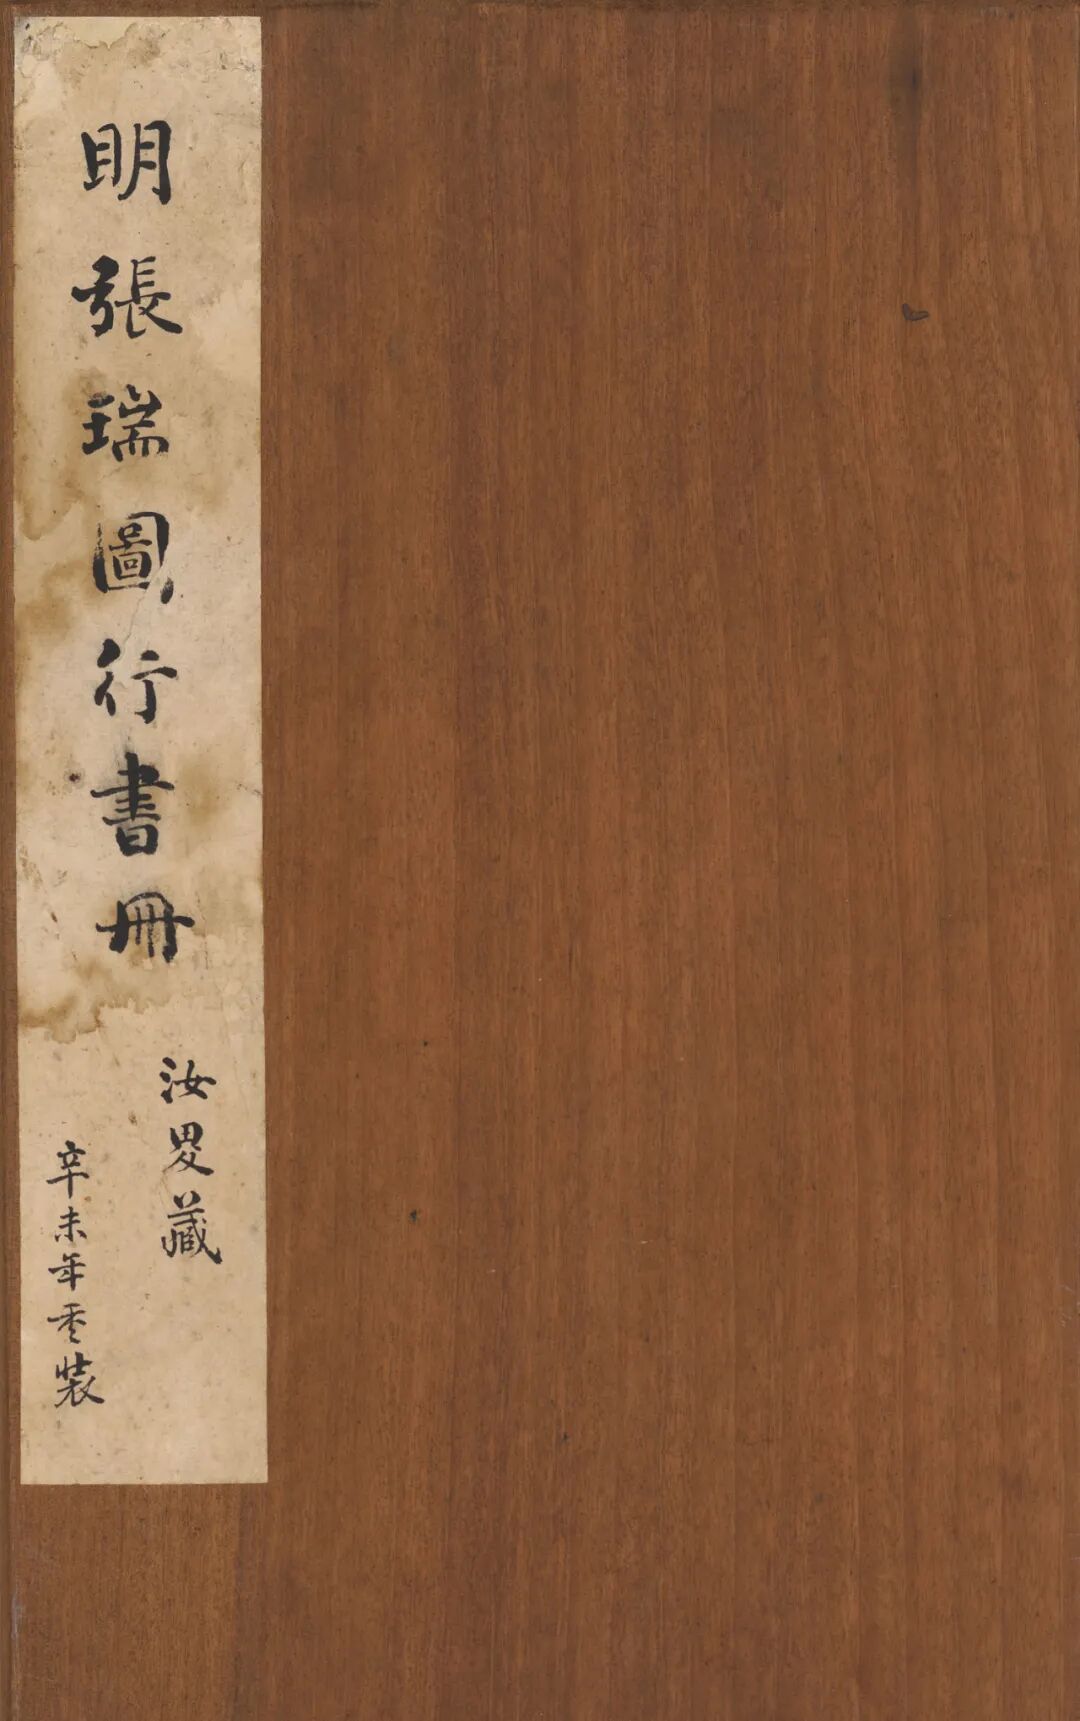 明張瑞圖行書冊
汝畟藏
辛未年重裝